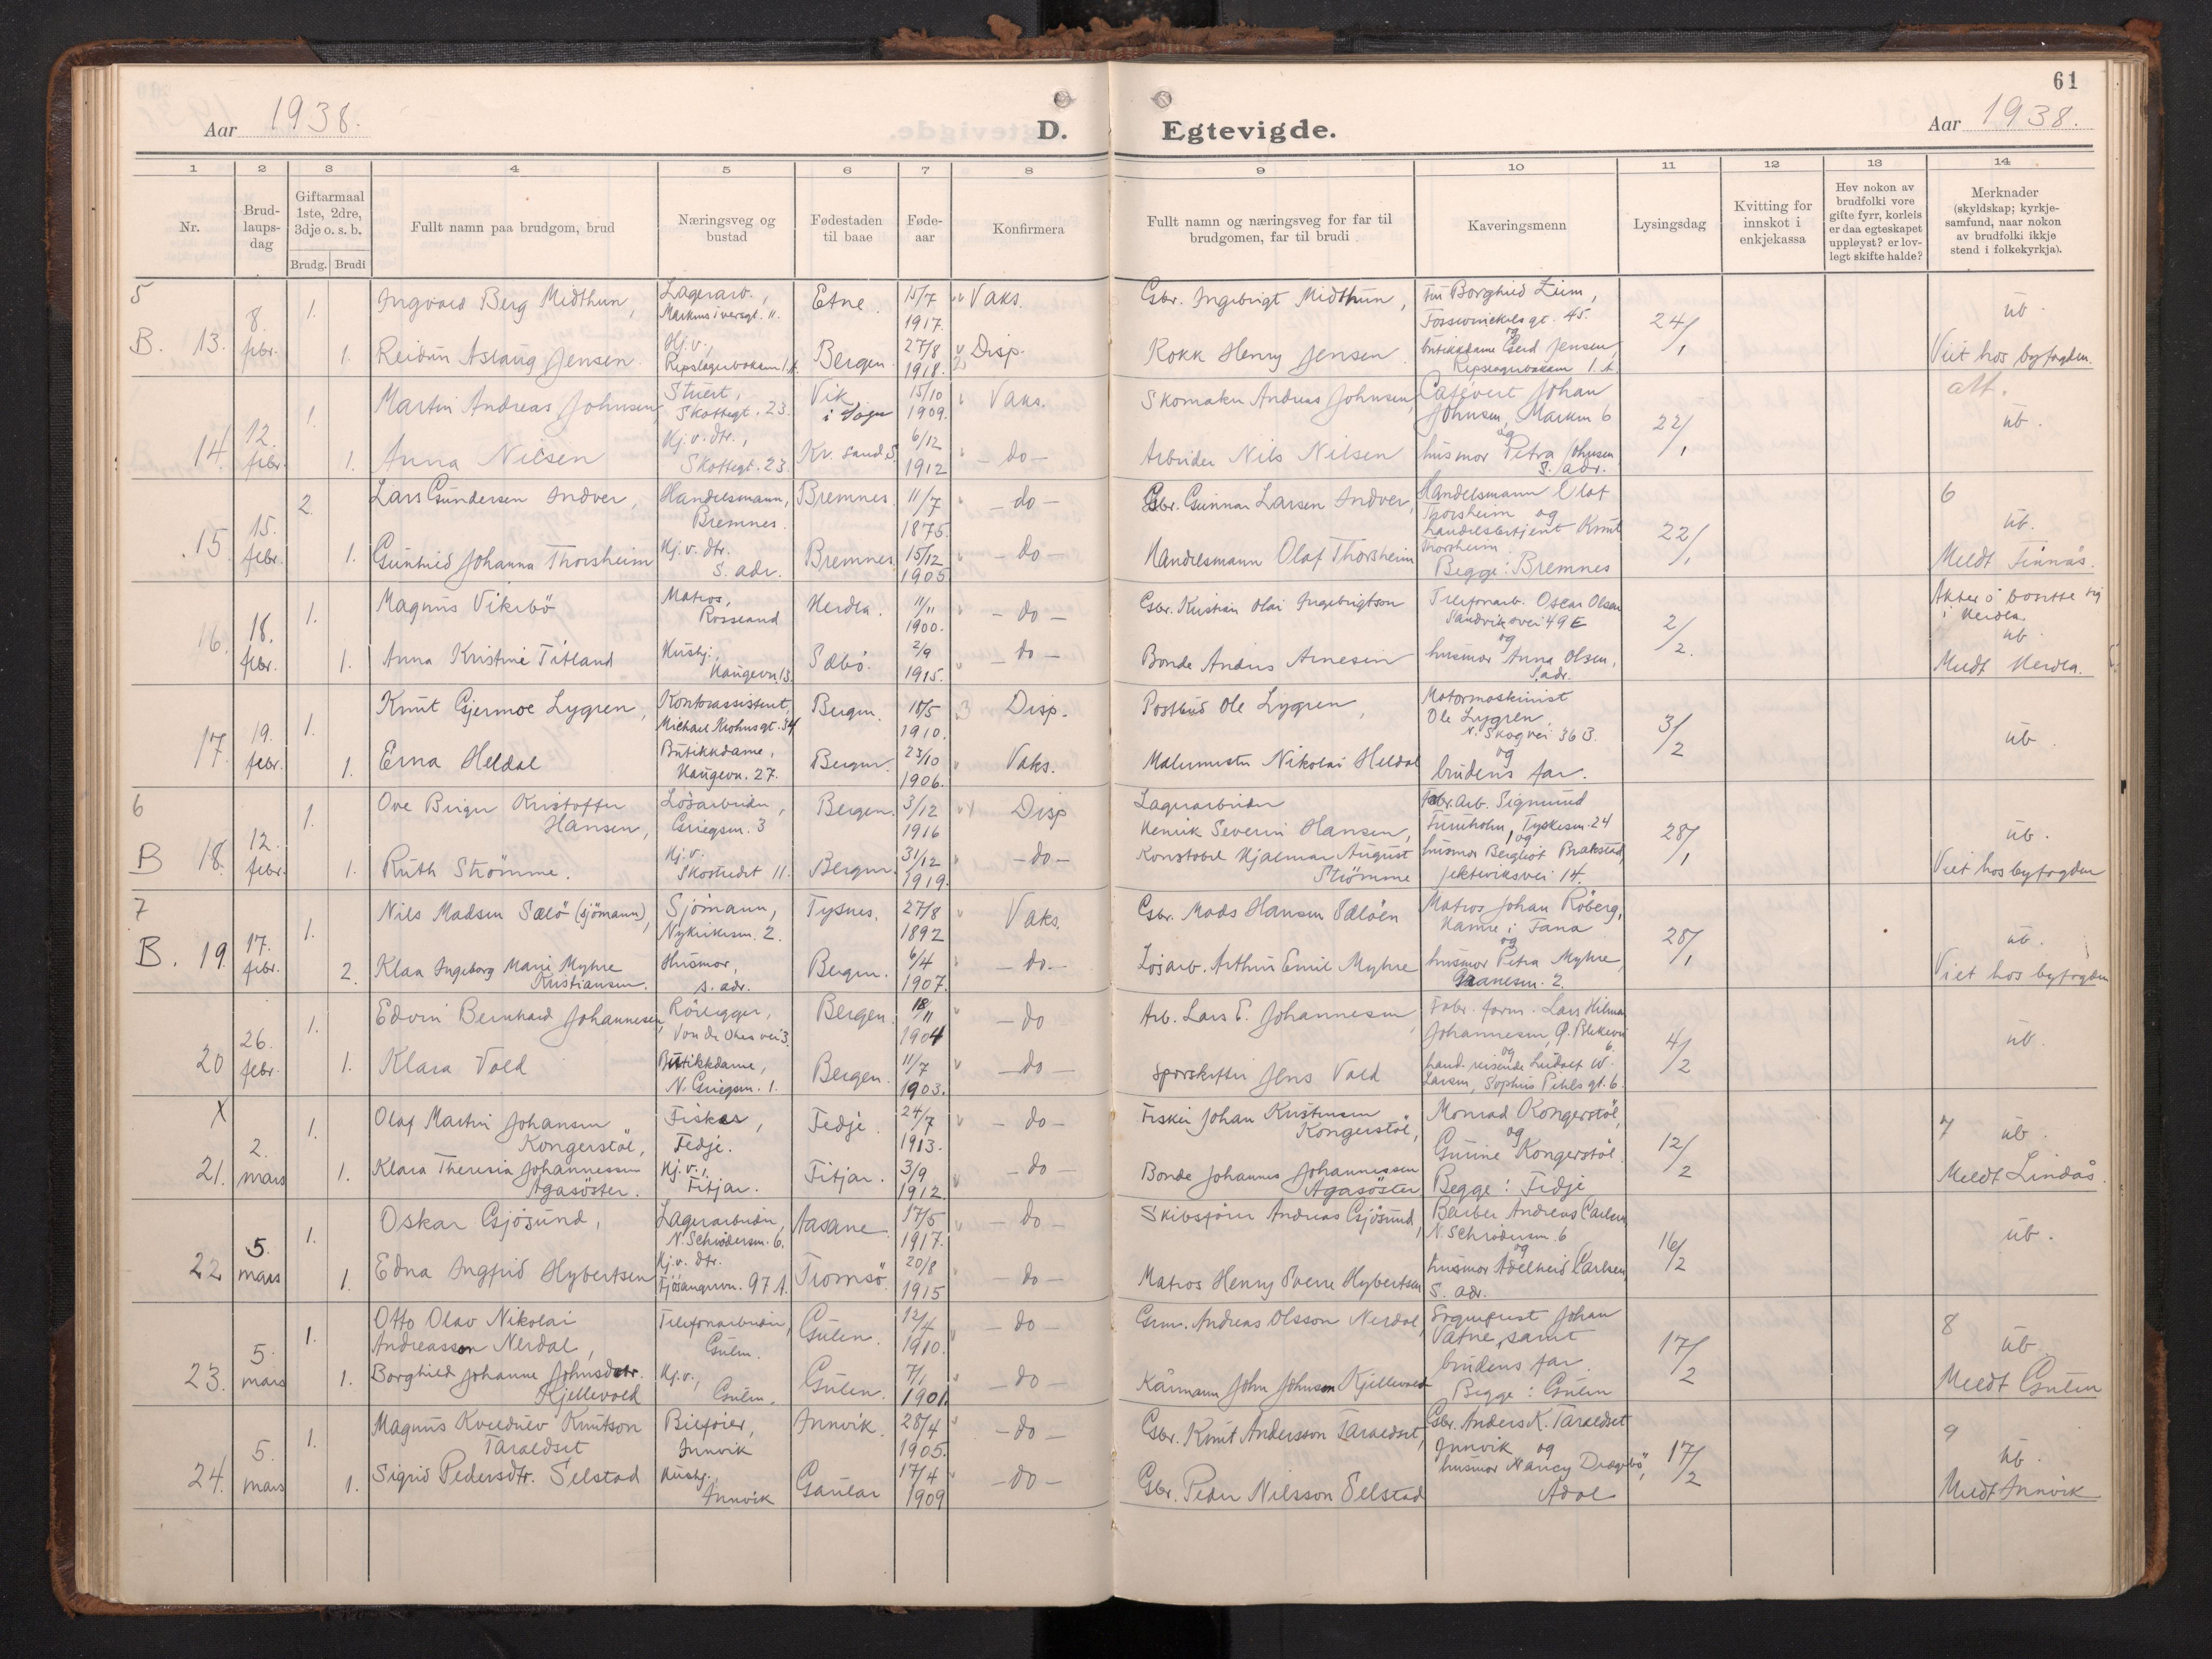 61
Aar 1938.
D. Egtevigde.
Aar 1938.
1 2 3 4 5 6 7 8 9 10 11 12 13 14
Nr.
Brud-
laups-
dag
Giftarmaal
1ste, 2dre,
3dje o. s. b.
Brudg. Brudi
Fullt namn paa brudgom, brud
Næringsveg og
bustad
Fødestaden
til baae
Føde-
aar
Konfirmera
Fullt namn og næringsveg for far til
brudgomen, far til brudi
Kaveringsmenn
Lysingsdag
Kvitting for
innskot i
enkjekassa
Hev nokon av
brudfolki vore
gifte fyrr, korleis
er daa egteskapet
uppløyst? er lov-
legt skifte halde?
Merknader
(skyldskap; kyrkje-
samfund, naar nokon
av brudfolki ikkje
stend i folkekyrkja).
5
B. 13. 8. febr.
1. Ingvard Berg Midthun, Lagerarb., Etne 15/7 1917 Vaks. Gbr. Ingebrigt Midthun, Borghild 45. 24/1 ub.
1. Reidun Aslaug Jensen. Hj.v., Bergen 27/8 1918 Disp. Kokk Henry Jensen. og butikkdame Gerd Jensen, Viet hos byfogden.
14. 12. febr.
1. Martin Andreas Johnsen, Stuert, Skottegt. 23. Vik i Sogn 15/10 1909. Vaks. Skomaker Andreas Johnsen, Johan Johnsen, Marken 6 22/1 att. ub.
1. Anna Nilsen Hj.v. dtr., Skottegt. 23. Kr. sand S. 6/12 1912 – do – Arbeider Nils Nilsen og husmor Petra Johnsen S. adr.
15. 15. febr.
2. Lars Gundersen Indver, Handelsmann, Bremnes. Bremnes 11/7 1875. – do – Gbr. Gunnar Larsen Indver, Handelsmann Olaf Thorsheim og 22/1 6 ub.
1. Gunhild Johanna Thorsheim Hj.v. dtr. S. adr. Bremnes 15/12 1905 – do – Handelsmann Olaf Thorsheim handelsbetjent Knut Thorsheim. Begge: Bremnes Meldt Finnås.
16. 18. febr.
1. Magnus Vikebö Matros, Rossland Herdla. 11/11 1900. – do – Gbr. Kristian Olai Ingebrigtson Telefonarb. Oscar Olsen Sandviksvei 49 E 2/2. Akter å bosette sig i Herdla. ub
1. Anna Kristine Titland Hushj., Haugevn. 13. Sæbö. 2/9 1915. – do – Bonde Anders Arnesen og husmor Anna Olsen, S. adr. Meldt Herdla.
17. 19. febr.
1. Knut Gjermoe Lygren, Kontorassistent, Michael Krohnsgt. 34 Bergen. 18/5 1910. Disp. Postbud Ole Lygren, Motormaskinist Ole Lygren N. Skogvei 36 B. 3/2 ub.
1. Erna Heldal Butikkdame, Haugevn. 27. Bergen. 23/10 1906. Vaks. Malermester Nikolai Heldal og brudens far.
6
B 18. 12. febr.
1. Ove Birger Kristoffer Hansen, Lösarbeider, Griegsm. 3 Bergen. 3/12 1916 Disp Lagerarbeider Henrik Severin Hansen, Fabr.arb. Sigmund Furuholm, Tyskesm. 24 28/1 ub.
1. Ruth Strömme. Hj.v. Skostredet 11. Bergen. 31/12 1919. – do – Konstabel Hjalmar August Strömme og husmor Bergliot Jekteviksvei 14. Viet hos byfogden
7
B. 19. 17. febr.
1. Nils Madsen Sælö (sjömann), Sjömann, Nykirkesm. 2. Tysnes. 27/8 1892 Vaks. Gbr. Mads Hansen Sælöen Matros Johan Röberg, Hamre i Fana 28/1 ub.
2. Klara Ingeborg Marie Myhre Kristiansen. Husmor, s. adr. Bergen. 6/4 1907. – do – Lösarb. Arthur Emil Myhre og husmor Petra Myhre, 2. Viet hos byfogden
20 26. febr.
1. Edvin Bernhard Johannesen, Rörlegger, Bergen. 18/11 1904 – do Arb. Lars E. Johannesen, Fabr. form. Lars Hilmar Johannesen, 6. 4/2 ub.
1. Klara Vold Butikkdame, N. Griegsm. 1. Bergen. 11/7 1903. – do – Sporskifter Jens Vold og hand. reisende Ludolf W. Larsen, Sophus Pihls gt. 6.
X
21. 2. mars
1. Olaf Martin Johansen Kongerstöl, Fisker, Fedje. Fedje. 24/7 1913. – do – Fisker Johan Kristensen Kongerstöl, Monrad Kongerstöl, og 12/2 7 ub.
1. Klara Theresia Johannessen Agasöster. Hj.v., Fitjar. Fitjar. 3/9 1912. – do – Bonde Johannes Johannessen Agasöster Gurine Kongerstöl. Begge: Fedje Meldt Lindås.
22 5. mars
1. Oskar Gjösund, Lagerarbeider, N. Schrödersm. 6. Aasane 17/5 1917. – do – Skibsförer Andreas Gjösund, Barber Andreas Carlsen, N Schrödersm. 6 16/2 ub.
1. Edna Ingfrid Hybertsen Hj.v. dtr. Fjösangervn. 97 A. Tromsö. 20/8 1915 – do – Matros Henry Sverre Hybertsen og husmor Adelheid Carlsen, S. adr.
23. 5. mars
1. Otto Olav Nikolai Andreasson Nerdal, Telefonarbeider, Gulen. Gulen. 12/4 1910. – do – Grm. Andreas Olsson Nerdal, Sogneprest Johan Vatne, samt 17/2 8 ub.
1. Borghild Johanne Johnsdotr. Kjellevold Hj.v., Gulen. Gulen. 7/1 1901. – do – Kårmann John Johnson Kjellevold brudens far. Begge: Gulen Meldt Gulen
24. 5. mars
1. Magnus Kveldulv Knutson Taraldset Bileier, Innvik Innvik. 28/4 1905. – do – Gbr. Knut Andersson Taraldset, Gbr. Anders K. Taraldset Innvik og 17/2 9 ub.
1. Sigrid Pedersdtr. Selstad Hushj., Innvik Gaular 17/4 1909 – do – Gbr. Peder Nilsson Selstad husmor Nancy Dragebö, Meldt Innvik